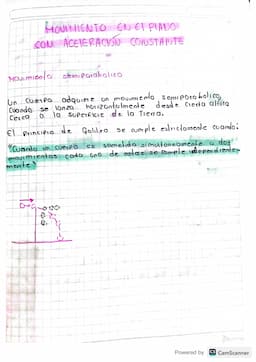 MOVIMIENTO EN El PlANO
CON ACElERACIÓN CONSTANTE
Movimiento semiparabolico
Un cuerpo adquiere un movimiento semiparabolico,
Cuando se lanza Horizontalmente desde cierta altura
Cerca a la superficie de la Tierra.
El principio de Galileo se cumple estrictamente cuando:
"Cuando un cuerpo es sometido simultaneamente a dos
movimientos cada uno de estos se cumple independiente-
mente"
Powered by CamScanner